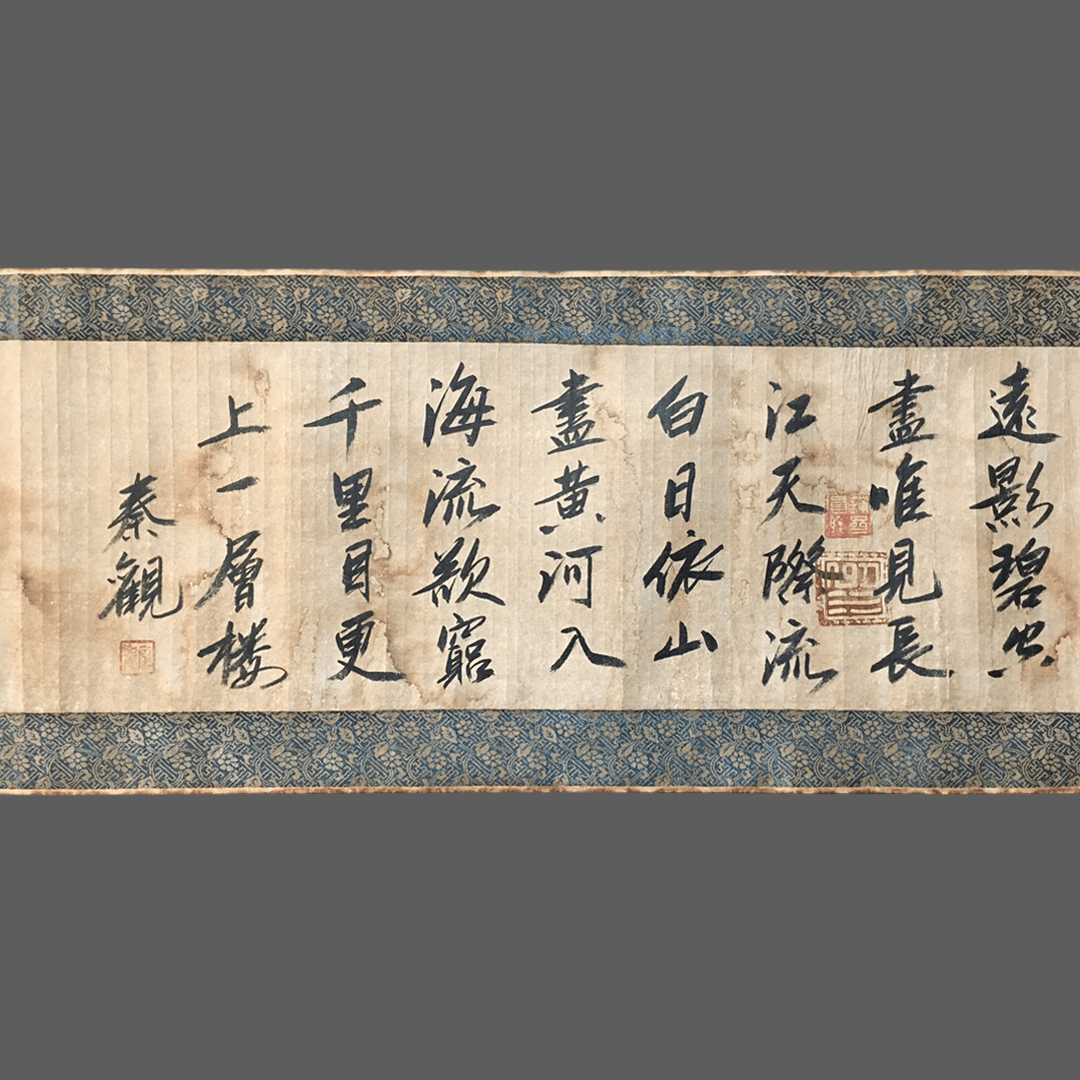 遠影碧空
盡唯見長
江天降流
白日依山
盡黄河入
海流欲窮
千里目更
上一層楼
秦觀